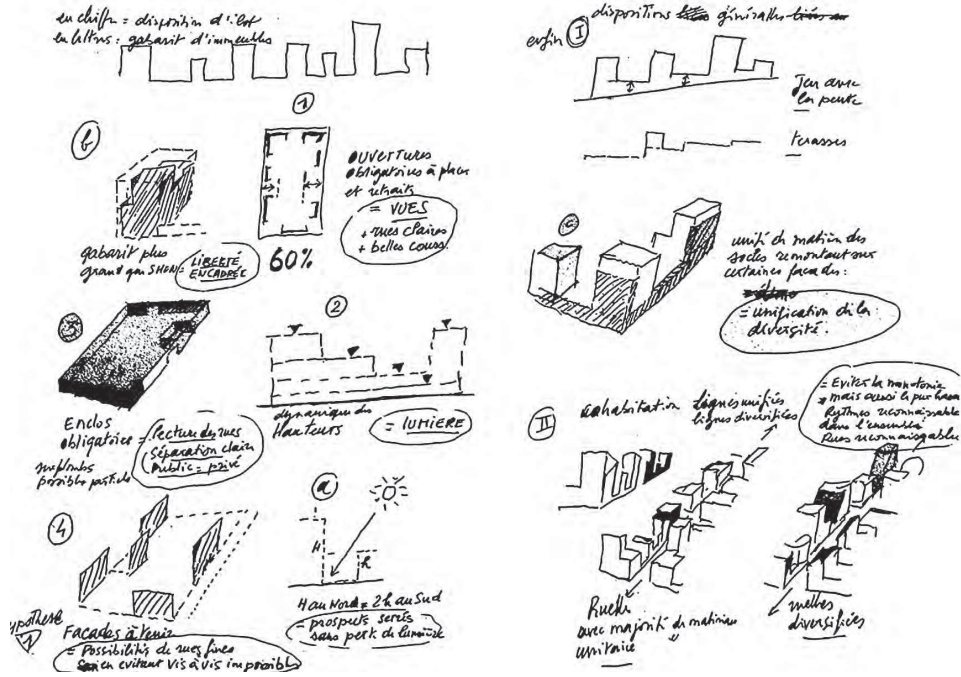 en chiffre = disposition d'îlot
en lettres : gabarit d'immeubles
①
⑥
OUVERTURES
obligatoires à placer
et retraits
= VUES
+ rues claires
+ belles cours.
gabarit plus
grand que SHON = LIBERTÉ
ENCADRÉE
60%
③
②
Enclos
obligatoire
= lecture des rues
séparation claire
Public = privé
surplombs
possibles partiels
dynamique des
Hauteurs
= LUMIERE
④
ⓐ
H
h
H au Nord = 2h au Sud
= prospects serrés
sans perte de lumière
Hypothèse
1
Facades à tenir
= Possibilités de rues fines
en evitant vis à vis impossibles
dispositions générales
enfin Ⅰ
Jeu avec
la pente
terasses
ⓒ
unité de matière des
socles remontant sur
certaines façades :
= unification de la
diversité.
Ⅱ
cohabitation
lignes unifiées
lignes diversifiées
= Eviter la monotonie
mais aussi le pur hasard
Rythmes reconnaissables
dans l'ensemble
Rues reconnaissables
Ruelle
avec majorité de matériau
unitaire
ruelles
diversifiées